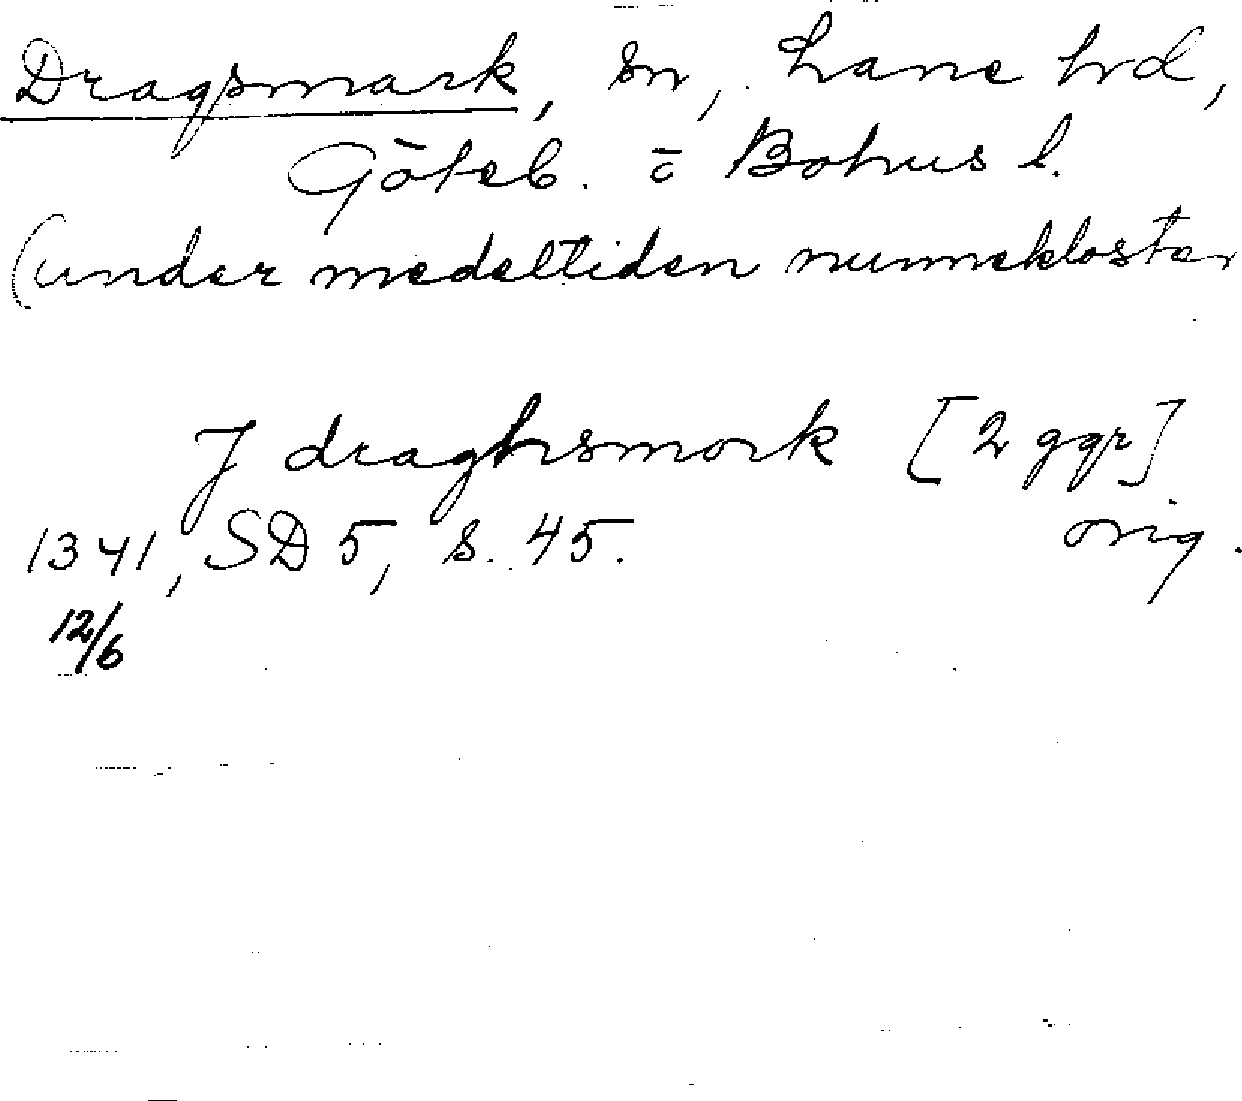 Dragsmark, sn, Lane hd,
Göteb. o Bohus l.
(under medeltiden nunnekloster
J draghsmork [2 ggr]
1341, SD 5, s. 45. orig.
12/6